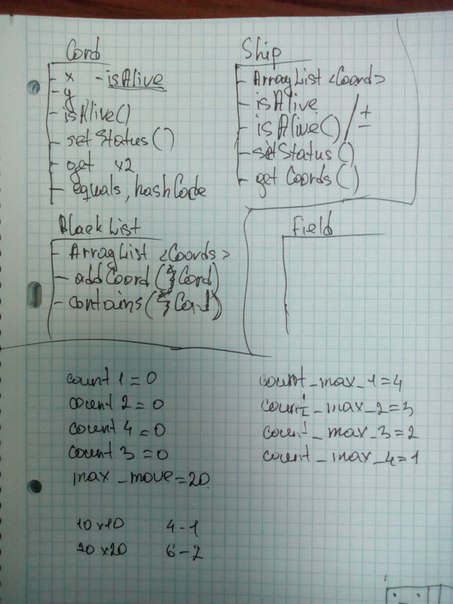 Cord
- x - isAlive
- y
- isAlive()
- setStatus()
- get x2
- equals, hashCode
Ship
- ArrayList <Coords>
- isAlive
- isAlive() / + -
- setStatus()
- get Coords()
BlackList
- ArrayList <Coords>
- addCoord(Cord)
- contains(Cord)
Field
count 1 = 0
count 2 = 0
count 4 = 0
count 3 = 0
max_move = 20
count_max_1 = 4
count_max_2 = 3
count_max_3 = 2
count_max_4 = 1
10x10 4-1
10x20 6-2